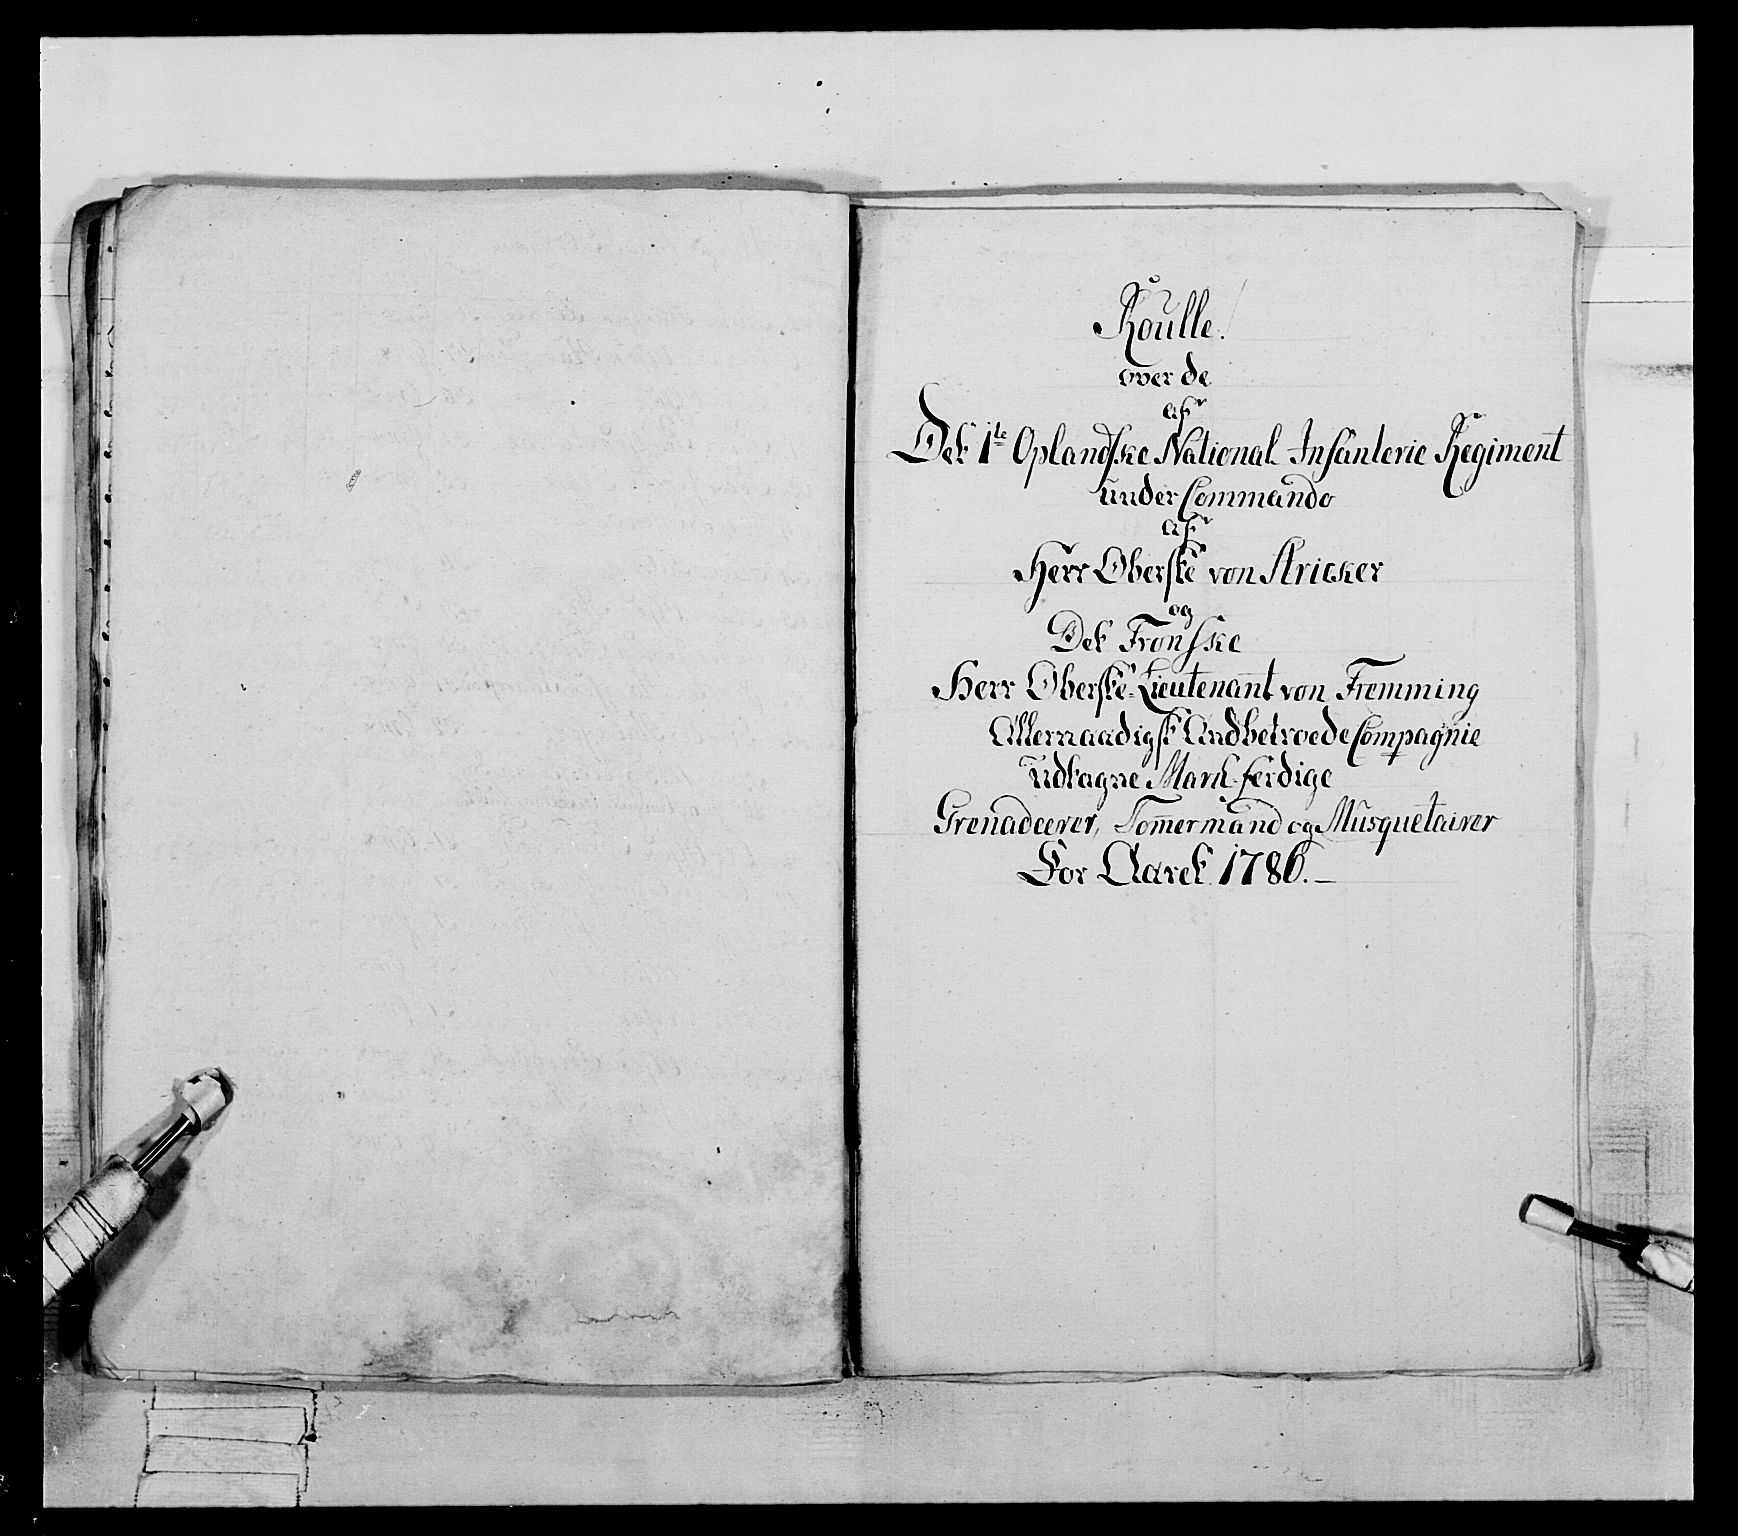 Roulle.
over de
af
Det 1te Oplandske National Infanterie Regiment
under Commando
af
Herr Oberste von Stricker
og
Det Fronske
Herr Oberste-Lieutenant von Fremming
Allernaadigst Andbetroede Compagnie
udtagne March-ferdige
Grenadeerer, Tom̅ermand og Musquetairer
For Aaret 1786.